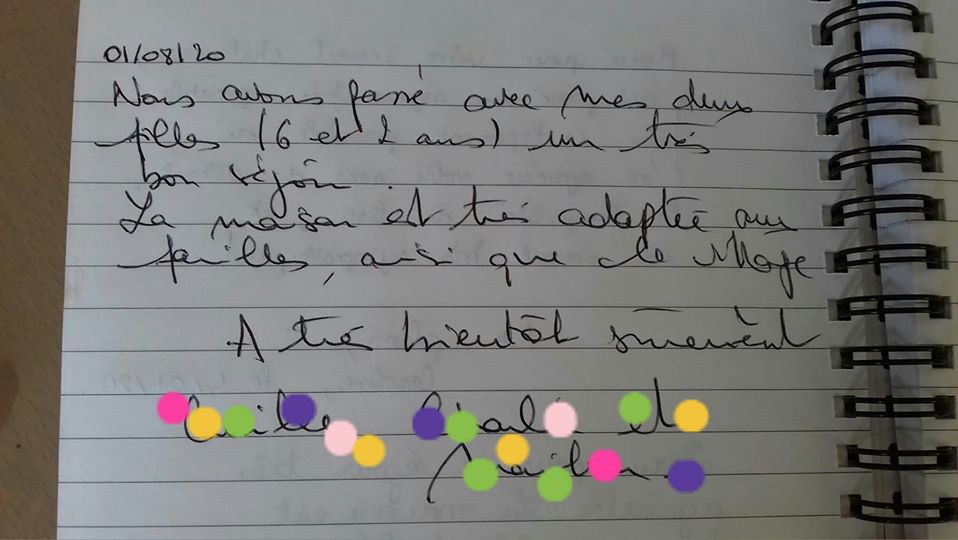 01/08/20
Nous avons passé avec mes deux
filles (6 et 2 ans) un très
bon séjour.
La maison est très adaptée aux
familles, ainsi que le village
A très bientôt sûrement
et